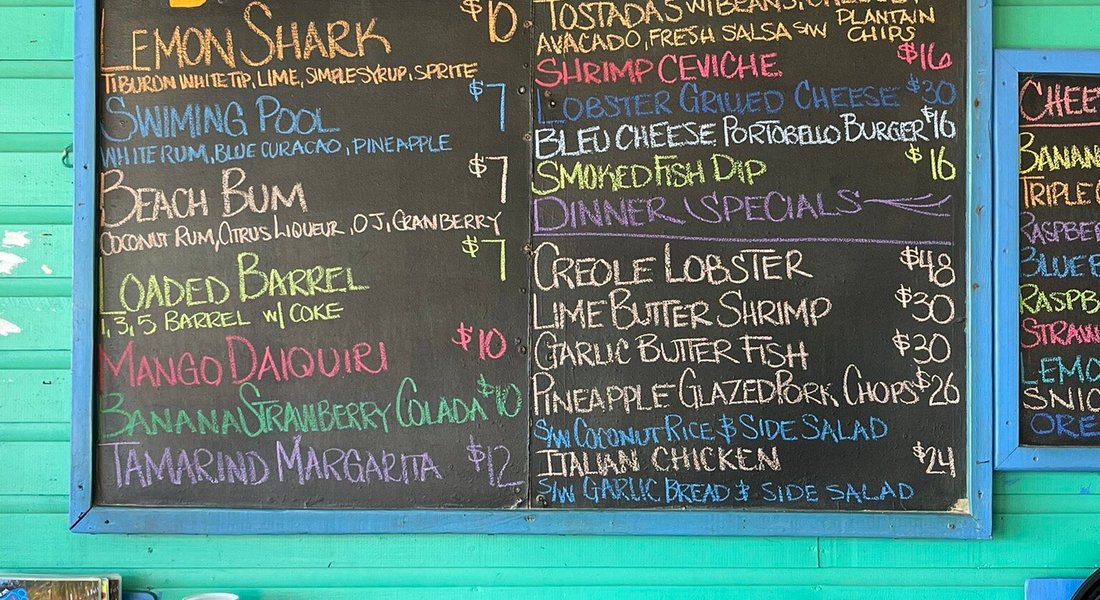 $10
LEMON SHARK
TIBURON WHITE TIP, LIME, SIMPLE SYRUP, SPRITE
SWIMING POOL $7
WHITE RUM, BLUE CURACAO, PINEAPPLE
BEACH BUM $7
COCONUT RUM, CITRUS LIQUEUR, OJ, CRANBERRY
LOADED BARREL $7
1, 3, 5 BARREL W/ COKE
MANGO DAIQUIRI $10
BANANA STRAWBERRY COLADA $10
TAMARIND MARGARITA $12
TOSTADAS W/BEANS,
AVACADO, FRESH SALSA S/W PLANTAIN CHIPS
SHRIMP CEVICHE $16
LOBSTER GRILLED CHEESE $30
BLEU CHEESE PORTOBELLO BURGER $16
SMOKED FISH DIP $16
DINNER SPECIALS
CREOLE LOBSTER $48
LIME BUTTER SHRIMP $30
GARLIC BUTTER FISH $30
PINEAPPLE GLAZED PORK CHOPS $26
S/W COCONUT RICE & SIDE SALAD
ITALIAN CHICKEN $24
S/W GARLIC BREAD & SIDE SALAD
CHEE
BANAN
TRIPLE
RASPBE
BLUE
RASPB
STRAW
LEMO
SNIC
ORE